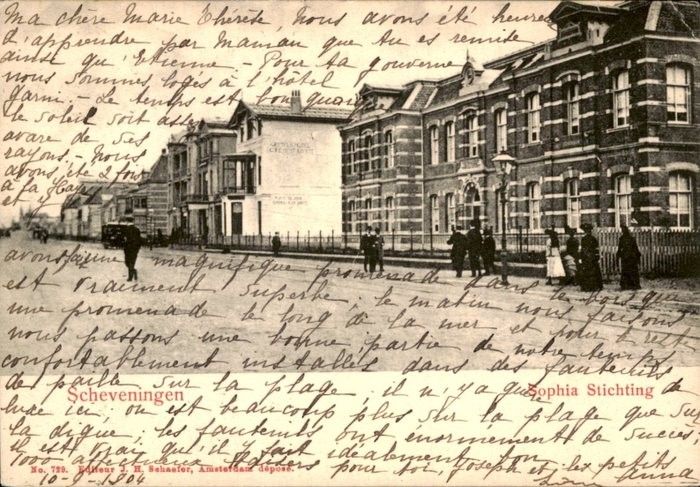 Ma chère Marie Thérèse, Nous avons été heureux
d'apprendre par Maman que tu es remise
ainsi qu'Etienne - Pour ta gouverne
nous sommes logés à l'hôtel
garni - Le temps est bon quoique
le soleil soit assez
avare de ses
rayons. Nous
avons été 2 fois
à la Haye
et y
avons fait une magnifique promenade dans le bois que
est vraiment superbe, le matin nous faisons
une promenade le long de la mer et pour le reste
nous passons une bonne partie de notre temps
confortablement installés dans des fauteuils
de paille sur la plage, il n'y a que de
luxe ici, on est beaucoup plus sur la plage que sur
la digue, les fauteuils ont énormement de succès,
Il est vrai qu'il y fait idéalement bon
1000 affectueux baisers pour toi, Joseph et les petits
Anna
Scheveningen
Sophia Stichting
No. 729. Editeur J. H. Schaefer, Amsterdam déposé.
10-9-1904